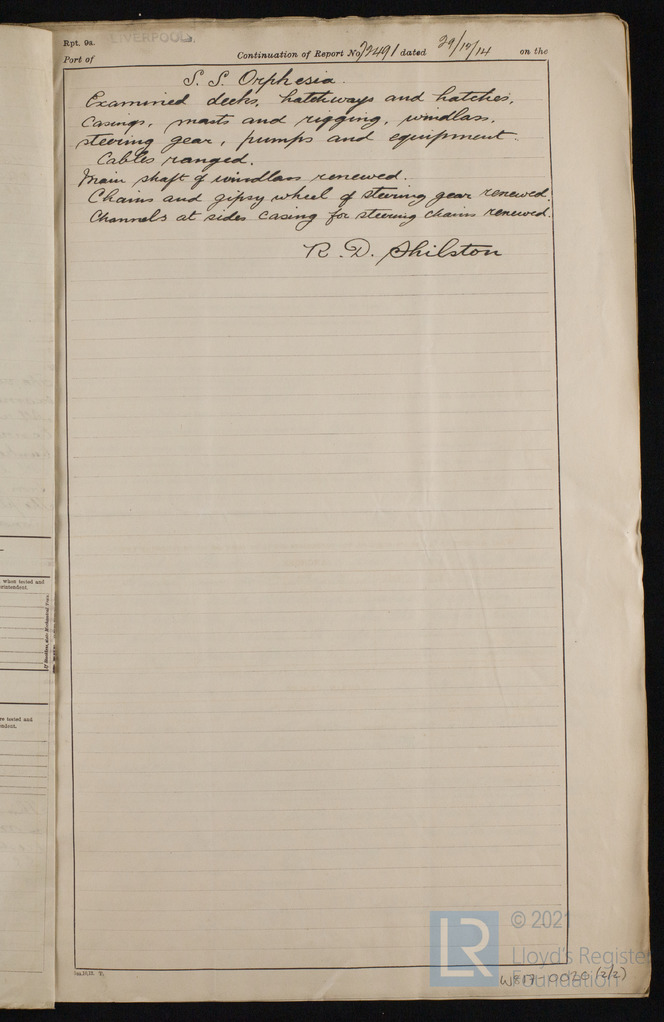 Rpt. 9a.
LIVERPOOL.
Port of
Continuation of Report No 72491 dated 29/12/14 on the
S. S. Orphesia
Examined decks, hatchways and hatches,
casings, masts and rigging, windlass,
steering gear, pumps and equipment.
Cables ranged.
Main shaft of windlass renewed.
Chains and gipsy wheel of steering gear renewed.
Channels at sides casing for steering chains renewed.
R. D. Shilston
when tested and
re tested and
LR
© 2021
Lloyd's Register
Foundation
W817-0020 (2/2)